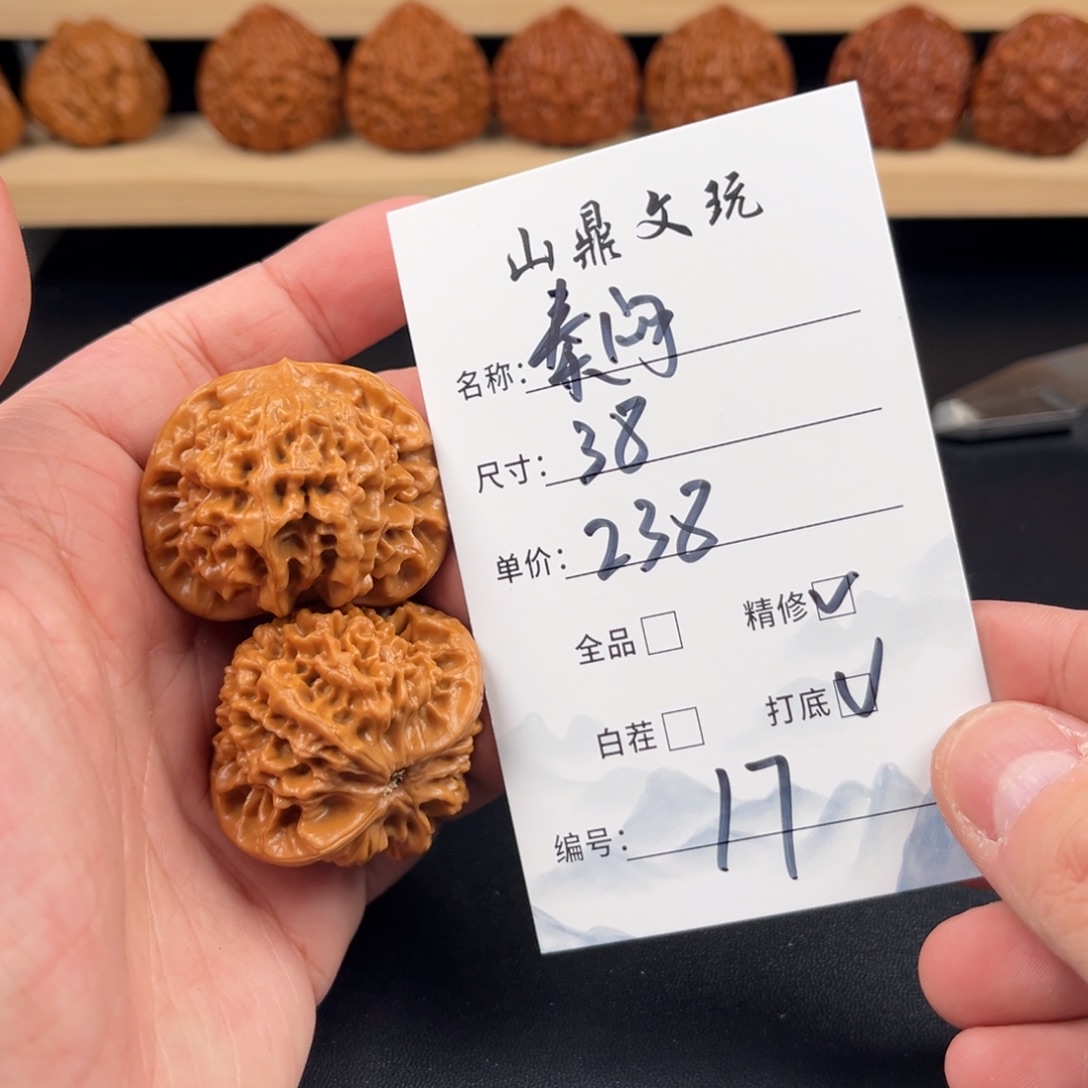 山鼎文玩
名称：秦闷
尺寸：38
单价：238
全品 精修
白茬 打底
编号：17